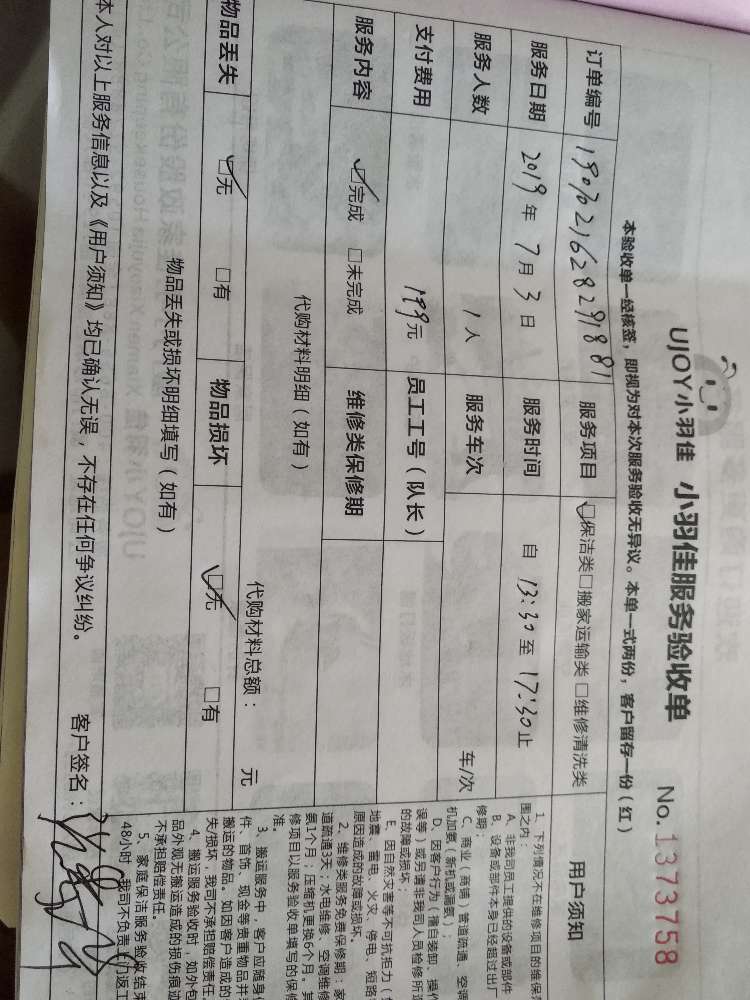 UJOY小羽佳 小羽佳服务验收单 No.1373758
本验收单一经核签，即视为对本次服务验收无异议。本单一式两份，客户留存一份（红）
订单编号 服务项目 保洁类□搬家运输类□维修清洗类
服务日期 2019年7月3日 服务时间 自13:30至17:30止
服务人数 1人 服务车次 车/次
支付费用 199元 员工工号（队长）
服务内容 ☑完成 □未完成 维修类保修期
代购材料明细（如有）
代购材料总额： 元
物品丢失 ☑无 □有 物品损坏 ☑无 □有
物品丢失或损坏明细填写（如有）
本人对以上服务信息以及《用户须知》均已确认无误，不存在任何争议纠纷。
客户签名：
用户须知
1、下列情况不在维修项目的维保范
围之内：
A、非我司员工提供的设备或部件
B、设备或部件本身已经超过出厂
修期；
C、商业（商铺）管道疏通、空调
机加氨（新机或漏氨）；
D、因客户行为（擅自装卸、操作
误等）或另请非我司人员检修所造
的故障或损坏；
E、因自然灾害等不可抗拒力（
地震、雷电、火灾、停电、短路
原因造成的故障或损坏。
2、维修类服务免费保修期：家
道疏通3天；水电维修、空调维修
氨1个月；压缩机更换6个月。其
修项目以服务验收单填写的保修
准。
3、搬运服务中，客户应随身
件、首饰、现金等贵重物品并
搬运的物品。如因客户造成的
失/损坏，我司不承担赔偿责任。
4、搬运服务验收时，如外包
品外观无搬运造成的损伤痕迹
不承担赔偿责任。
5、家庭保洁服务验收结束
48小时，我司不负责上门返工